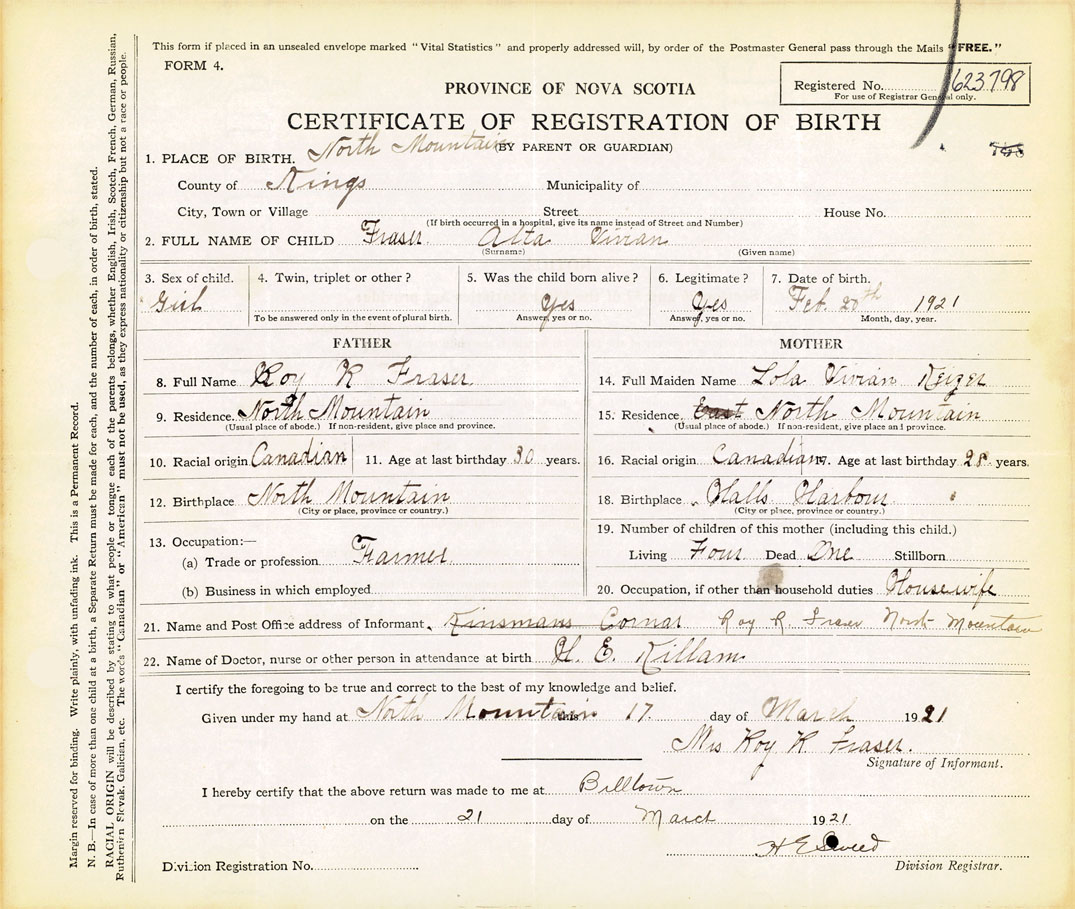 This form if placed in an unsealed envelope marked "Vital Statistics" and properly addressed will, by order of the Postmaster General pass through the Mails "FREE."
FORM 4.
Registered No. 623798
For use of Registrar General only.
PROVINCE OF NOVA SCOTIA
CERTIFICATE OF REGISTRATION OF BIRTH
(BY PARENT OR GUARDIAN)
1. PLACE OF BIRTH. North Mountain
County of Kings Municipality of
City, Town or Village Street House No.
(If birth occurred in a hospital, give its name instead of Street and Number)
2. FULL NAME OF CHILD Fraser Alta Vivian
(Surname) (Given name)
3. Sex of child. 4. Twin, triplet or other? 5. Was the child born alive? 6. Legitimate? 7. Date of birth.
Girl Yes Yes Feb. 20th 1921
To be answered only in the event of plural birth. Answer, yes or no. Answer, yes or no. Month, day, year.
FATHER
8. Full Name Roy R Fraser
9. Residence. North Mountain
(Usual place of abode.) If non-resident, give place and province.
10. Racial origin Canadian 11. Age at last birthday 30 years.
12. Birthplace North Mountain
(City or place, province or country.)
13. Occupation:—
(a) Trade or profession Farmer
(b) Business in which employed
MOTHER
14. Full Maiden Name Lola Vivian Keizer
15. Residence East North Mountain
(Usual place of abode.) If non-resident, give place and province.
16. Racial origin Canadian 17. Age at last birthday 28 years.
18. Birthplace Halls Harbour
(City or place, province or country.)
19. Number of children of this mother (including this child.)
Living Four Dead One Stillborn
20. Occupation, if other than household duties Housewife
21. Name and Post Office address of Informant. Kinsmans Cornar Roy R. Fraser North Mountain
22. Name of Doctor, nurse or other person in attendance at birth H. E. Killam
I certify the foregoing to be true and correct to the best of my knowledge and belief.
Given under my hand at North Mountain this 17. day of March 1921
Mrs Roy R Fraser.
Signature of Informant.
I hereby certify that the above return was made to me at Billtown
on the 21 day of March 1921
Division Registration No. Division Registrar.
Margin reserved for binding. Write plainly, with unfading ink. This is a Permanent Record.
N. B.—In case of more than one child at a birth, a Separate Return must be made for each, and the number of each, in order of birth, stated.
RACIAL ORIGIN will be described by stating to what people or tongue each of the parents belongs, whether English, Irish, Scotch, French, German, Russian,
Ruthenian, Slovak, Galician, etc. The words "Canadian" or "American" must not be used, as they express nationality or citizenship but not a race or people.